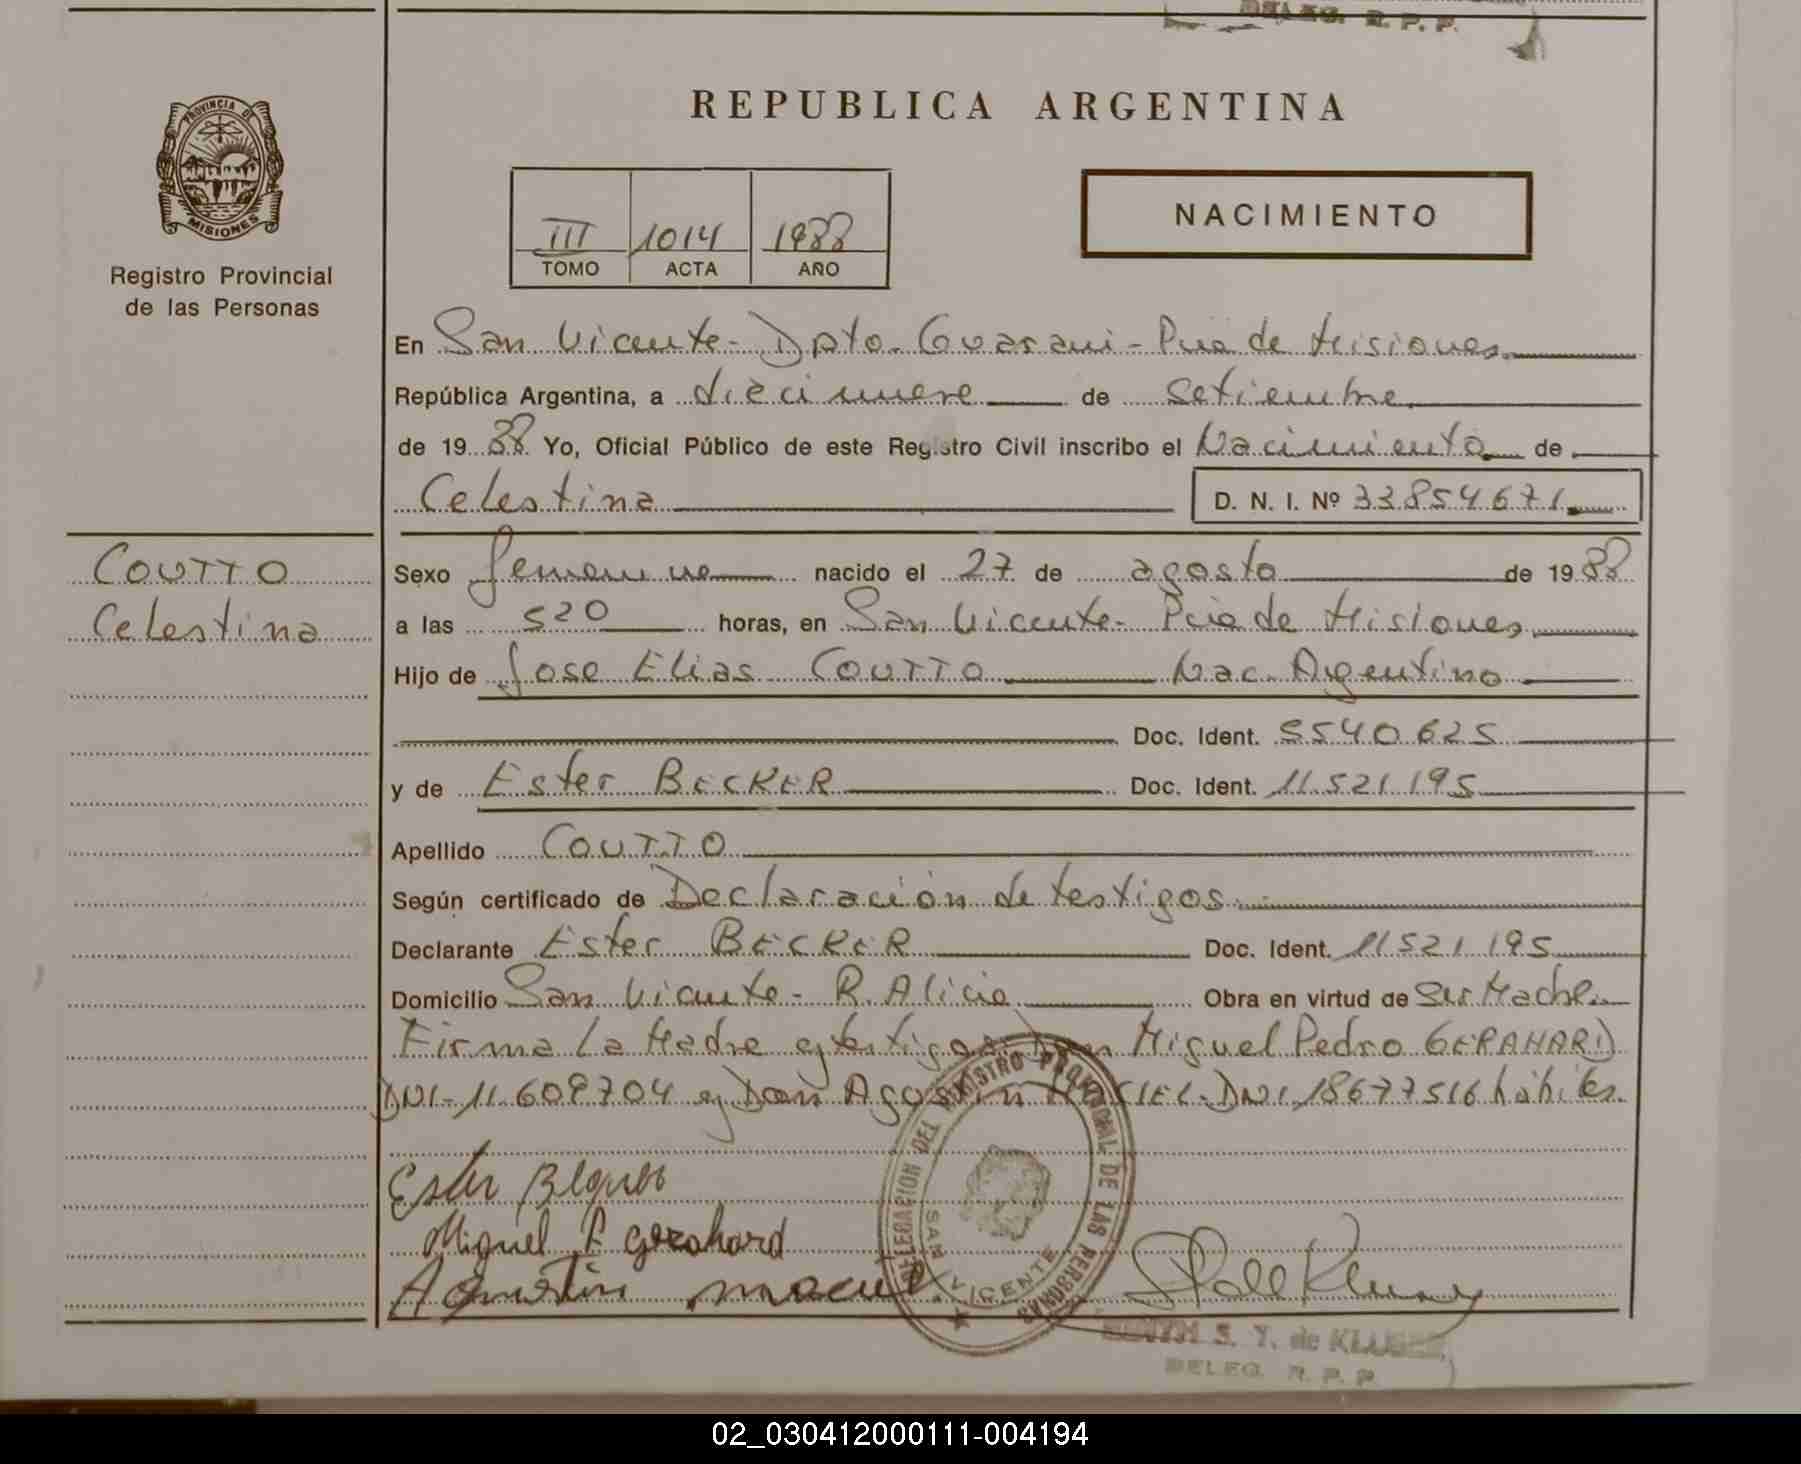 DELEG. R. P. P.
REPUBLICA ARGENTINA
PROVINCIA DE
MISIONES
Registro Provincial
de las Personas
III 1014 1988
TOMO ACTA AÑO
NACIMIENTO
En San Vicente - Dpto. Guarani - Pcia de Misiones
República Argentina, a diecinueve de setiembre
de 19 88 Yo, Oficial Público de este Registro Civil inscribo el Nacimiento de
Celestina D. N. I. Nº 33854671
COUTTO
Celestina
Sexo femenino nacido el 27 de agosto de 19 88
a las 520 horas, en San Vicente - Pcia de Misiones
Hijo de Jose Elias COUTTO Nac. Argentino
Doc. Ident. 5540625
y de Ester BECKER Doc. Ident. 11.521.195
Apellido COUTTO
Según certificado de Declaración de testigos
Declarante Ester BECKER Doc. Ident. 11.521.195
Domicilio San Vicente - R. Alicia Obra en virtud de Ser Madre
Firma la Madre y testigos Don Miguel Pedro GERAHARD
DNI - 11.609704 y Don Agustin MACIEL - DNI 18677516 hábiles.
Ester
Miguel P gerahard
Agustin maciel
DELEGACION DEL REGISTRO PROVINCIAL DE LAS PERSONAS
SAN VICENTE
S. T. de KLUGE
DELEG. R. P. P.
02_030412000111-004194